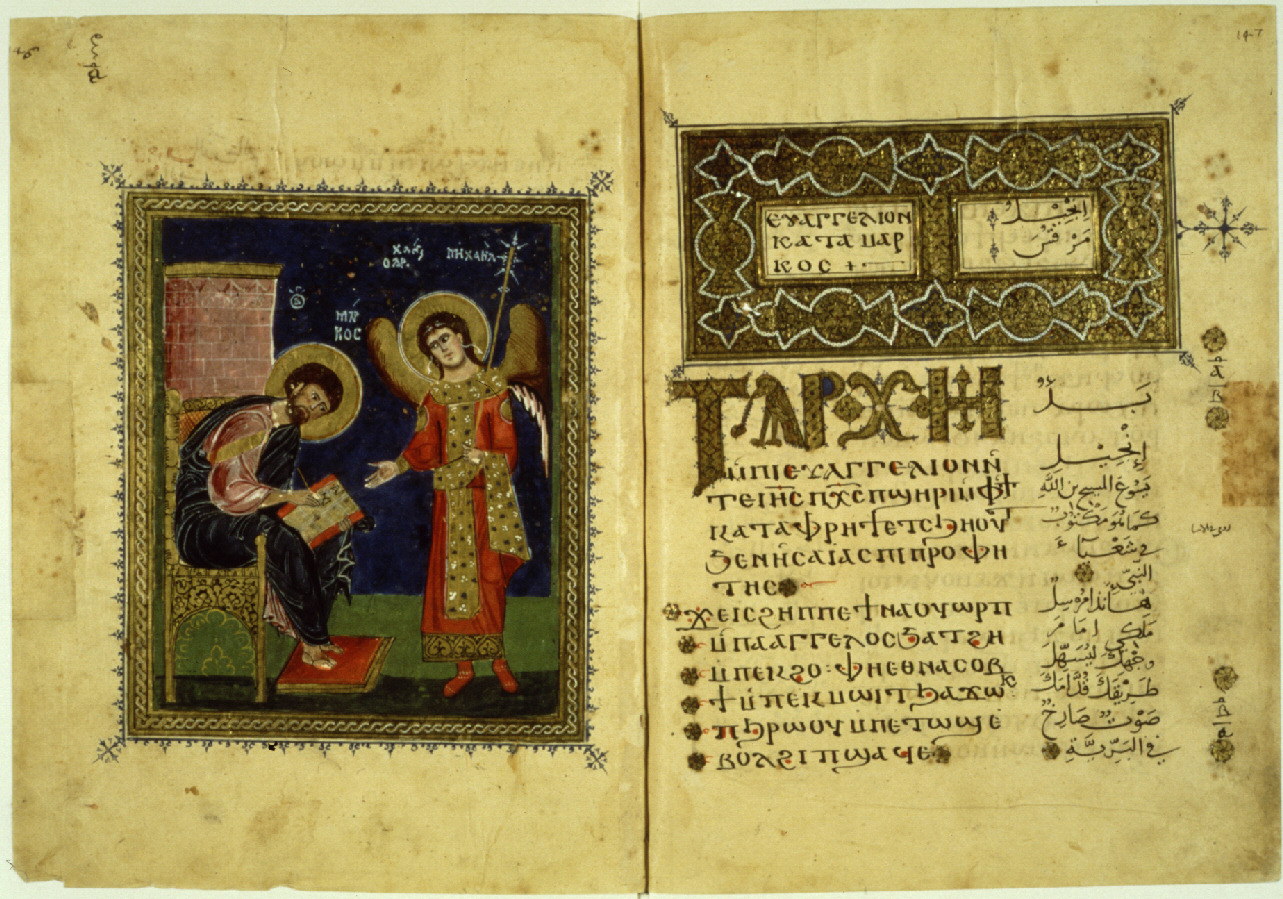 ⲭⲁⲓ
ⲟⲁⲣ.
ⲙⲏⲭⲁⲏⲗ
ⲙⲁⲣ
ⲕⲟⲥ
ⲉⲩⲁⲅⲅⲉⲗⲓⲟⲛ
ⲕⲁⲧⲁ ⲙⲁⲣ
ⲕⲟⲥ +
انجيل
مرقس
ⲧⲁⲣⲭⲏ
ⲙ̀ⲡⲓⲉⲩⲁⲅⲅⲉⲗⲓⲟⲛ ⲛ̀
ⲧⲉ ⲓⲏ̅ⲥ̅ ⲡⲭ̅ⲥ̅ ⲡϣⲏⲣⲓ ⲙ̀ⲫϯ
ⲕⲁⲧⲁ ⲫⲣⲏϯ ⲉⲧⲥϧⲏⲟⲩⲧ
ϧⲉⲛ ⲏ̀ⲥⲁⲓⲁⲥ ⲡⲓⲡⲣⲟⲫⲏ
ⲧⲏⲥ
ϫⲉ ⲓⲥ ϩⲏⲡⲡⲉ ϯⲛⲁⲟⲩⲱⲣⲡ
ⲙ̀ⲡⲁⲁⲅⲅⲉⲗⲟⲥ ϧⲁⲧϩⲏ
ⲙ̀ⲡⲉⲕϩⲟ: ⲫⲏ ⲉⲑⲛⲁⲥⲟⲃ
ϯ ⲙ̀ⲡⲉⲕⲙⲱⲓⲧ ϧⲁϫⲱⲕ
ⲡϧⲣⲱⲟⲩ ⲙ̀ⲡⲉⲧⲱϣ ⲉ̀
ⲃⲟⲗ ϩⲓ ⲡϣⲁϥⲉ
بدو
انجيل
يسوع المسيح بن الله
كما هو مكتوب
في شعياء
النبي
هاندا مرسل
ملاكي امام
وجهك ليسهل
طريقك قدامك
صوت صارخ
في البرية